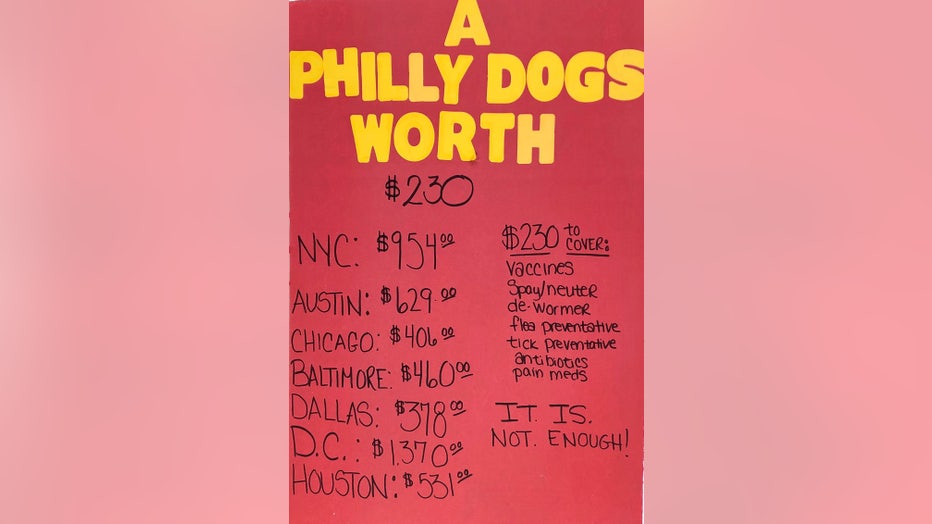 A
PHILLY DOGS
WORTH
$230
NYC: $954.00
AUSTIN: $629.00
CHICAGO: $406.00
BALTIMORE: $460.00
DALLAS: $378.00
D.C.: $1,370.00
HOUSTON: $531.00
$230 to COVER:
vaccines
Spay/neuter
de-wormer
flea preventative
tick preventative
antibiotics
pain meds
IT. IS.
NOT. ENOUGH!